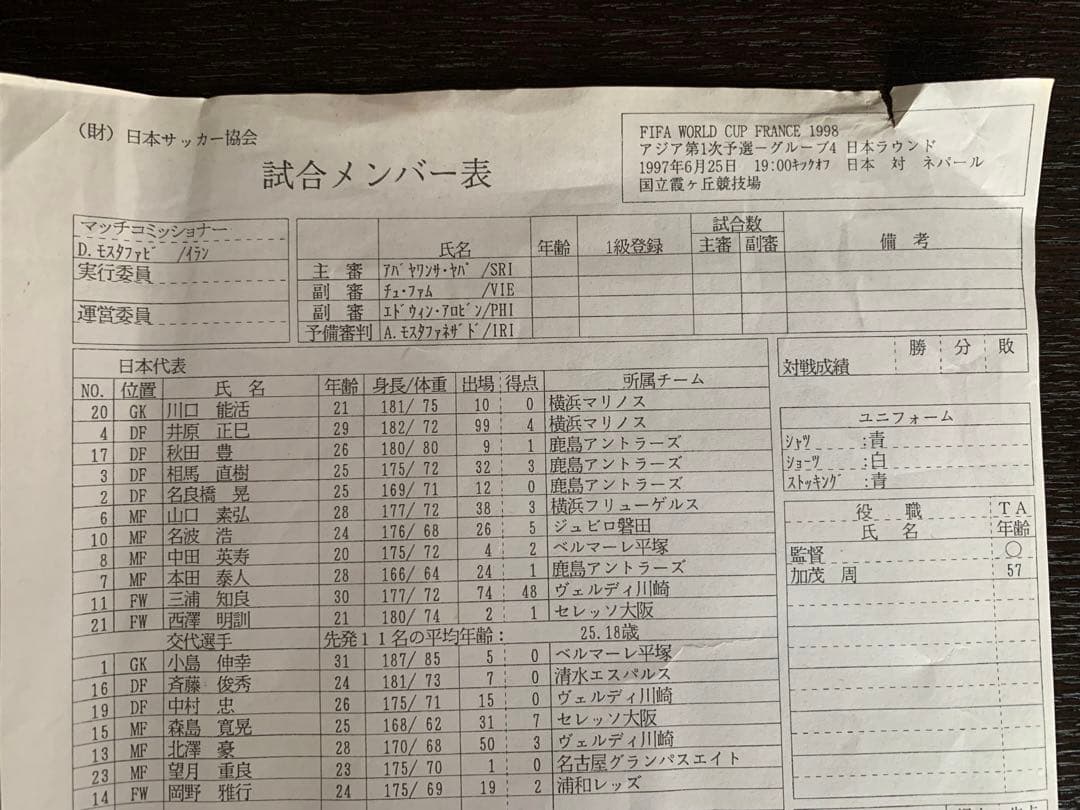 (財)日本サッカー協会
試合メンバー表
FIFA WORLD CUP FRANCE 1998
アジア第1次予選ーグループ4 日本ラウンド
1997年6月25日 19:00ｷｯｸｵﾌ 日本 対 ネパール
国立霞ヶ丘競技場
マッチコミッショナー
D.ﾓｽﾀﾌｧﾋﾞ /ｲﾗﾝ
実行委員
運営委員
氏名 年齢 1級登録 試合数 主審 副審 備考
主審 ｱﾊﾞﾔﾜﾝｻ･ﾔﾊﾟ/SRI
副審 ﾁｭ･ﾌｧﾑ /VIE
副審 ｴﾄﾞｳｨﾝ･ｱﾛﾋﾞﾝ/PHI
予備審判 A.ﾓｽﾀﾌｧﾈｻﾞﾄﾞ/IRI
日本代表
NO. 位置 氏名 年齢 身長/体重 出場 得点 所属チーム
20 GK 川口 能活 21 181/ 75 10 0 横浜マリノス
4 DF 井原 正巳 29 182/ 72 99 4 横浜マリノス
17 DF 秋田 豊 26 180/ 80 9 1 鹿島アントラーズ
3 DF 相馬 直樹 25 175/ 72 32 3 鹿島アントラーズ
2 DF 名良橋 晃 25 169/ 71 12 0 鹿島アントラーズ
6 MF 山口 素弘 28 177/ 72 38 3 横浜フリューゲルス
10 MF 名波 浩 24 176/ 68 26 5 ジュビロ磐田
8 MF 中田 英寿 20 175/ 72 4 2 ベルマーレ平塚
7 MF 本田 泰人 28 166/ 64 24 1 鹿島アントラーズ
11 FW 三浦 知良 30 177/ 72 74 48 ヴェルディ川崎
21 FW 西澤 明訓 21 180/ 74 2 1 セレッソ大阪
交代選手 先発11名の平均年齢： 25.18歳
1 GK 小島 伸幸 31 187/ 85 5 0 ベルマーレ平塚
16 DF 斉藤 俊秀 24 181/ 73 7 0 清水エスパルス
19 DF 中村 忠 26 175/ 71 15 0 ヴェルディ川崎
15 MF 森島 寛晃 25 168/ 62 31 7 セレッソ大阪
13 MF 北澤 豪 28 170/ 68 50 3 ヴェルディ川崎
23 MF 望月 重良 23 175/ 70 1 0 名古屋グランパスエイト
14 FW 岡野 雅行 24 175/ 69 19 2 浦和レッズ
対戦成績 勝 分 敗
ユニフォーム
ｼｬﾂ :青
ｼｮｰﾂ :白
ｽﾄｯｷﾝｸﾞ:青
役職 TA
氏名 年齢
監督 ○
加茂 周 57